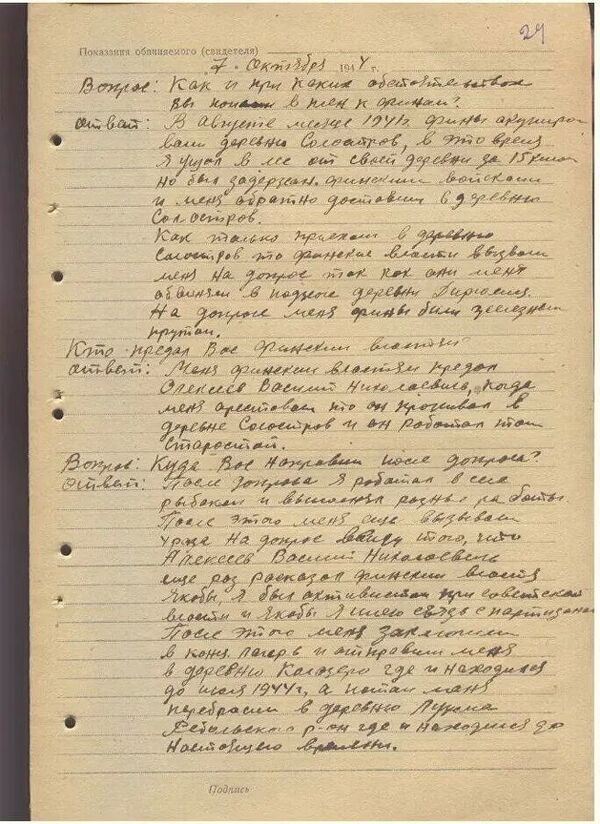 29
Показания обвиняемого (свидетеля)
7 · Октября 1944 г.
Вопрос: Как и при каких обстоятельствах
вы попали в плен к финам?
Ответ: В Августе месяце 1941г. фины акупиро
вали деревню Сологостров, в это время
Я ушол в лес от своей деревни за 15 клм
но был задержан финскими войсками
и меня обратно доставили в деревню
Как только приехали в деревню
то финские власти вызвали
меня на допрос так как они меня
обвиняли в поджоге деревни
На допросе меня фины били железным
прутом.
Кто предал Вас финским властям
Ответ: Меня финским властям предал
Алексеев Василий Николаевич, когда
меня арестовали то он проживал в
деревне и он работал там
Старостой.
Вопрос: Куда Вас направили после допроса?
Ответ: После допроса Я работал в селе
рыбаком и выполнял разные работы
После этого меня еще вызывали
на допрос ввиду того, что
Алексеев Василий Николаевич
еще раз расказал финским власти
Якобы, Я был активистом при советской
власти и Якобы Я имею связь с партизанами
После этого меня заключили
в конц. лагерь и отправили меня
в деревню где и находился
до июля 1944 г, а потом меня
перебросили в деревню
Ребольского р-он где и находился до
настоящего времени.
Подпись